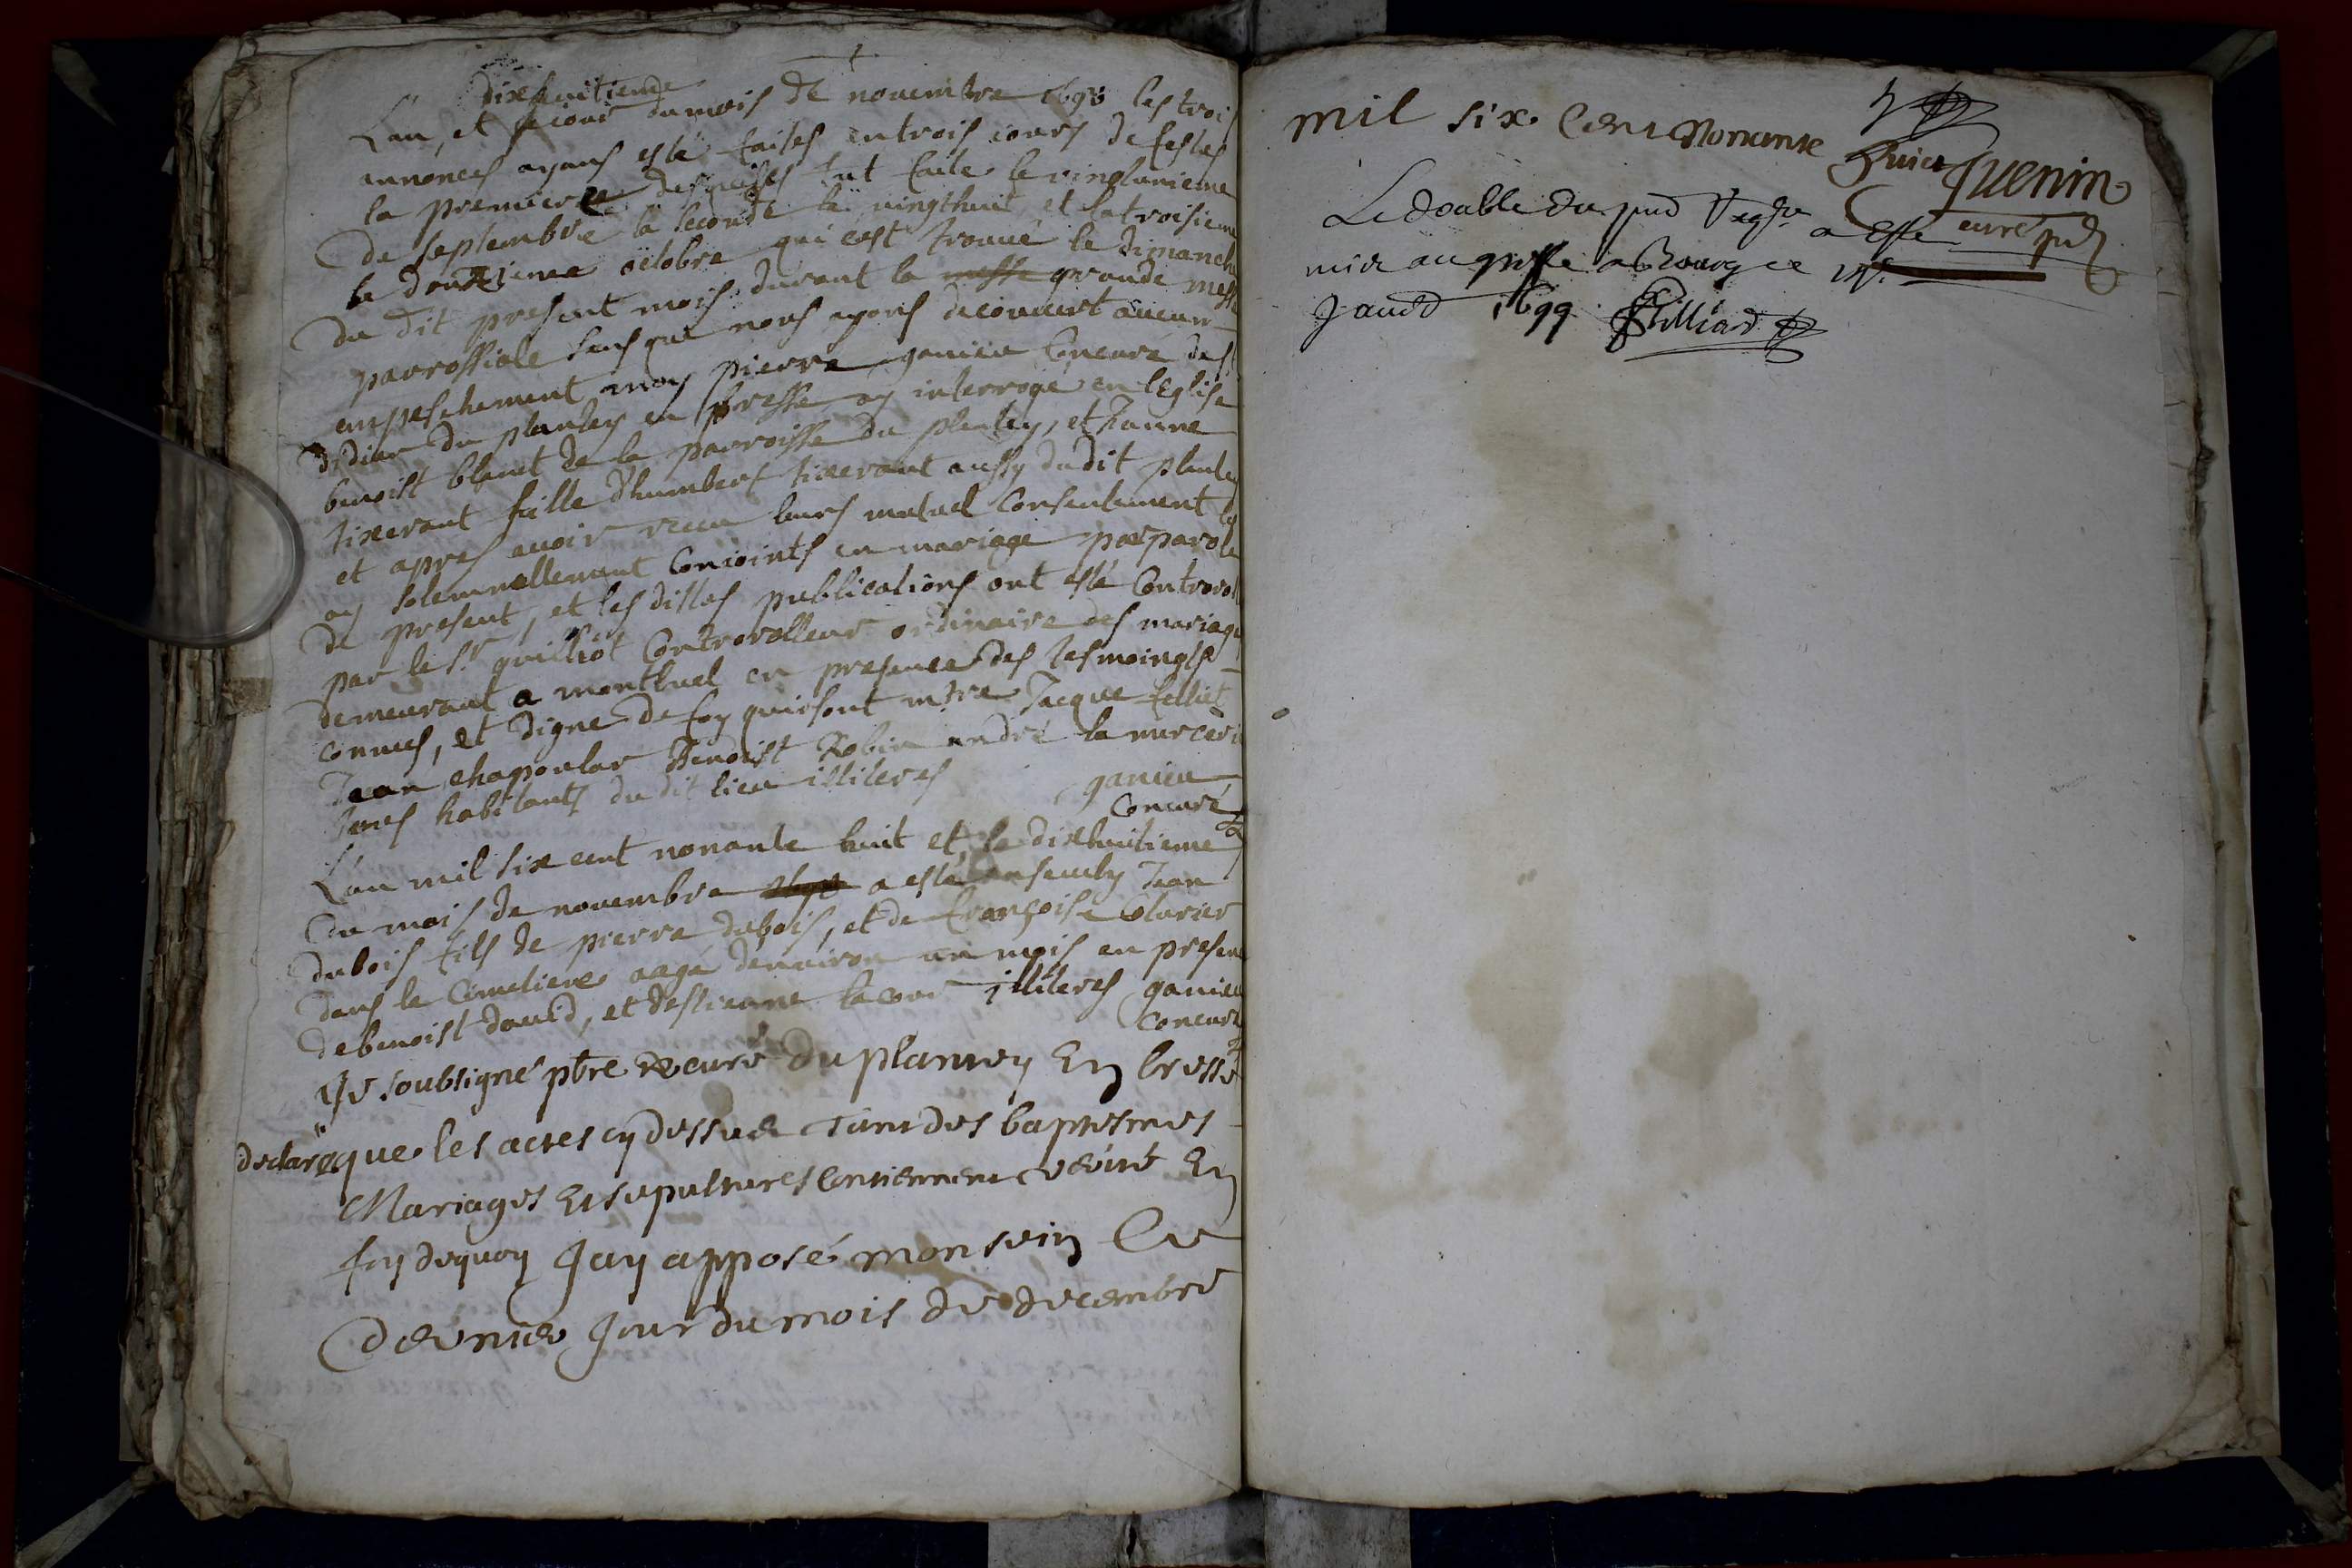 dixhuitiende
L'an, et jour du mois de novembre 1698 les trois
annonces ayans esté faites en trois iours de festes
la premiere desquelles fut faite le vingtunieme
de septembre la seconde le vingthuit et la troisieme
le douzieme octobre qui cest trouvé le dimanche
du dit present mois durant la messe grande messe
parrossiale sens que nous ayons decouvert aucun
empeschement moy pierre ganieu Concuré de st
didier du plantey en bresse ay interrogé en l'Eglise
benoist blanet de la parroisse du plantey, et Jeanne
tixerant fille d'humbert tixerant aussy du dit plantey
et apres avoir receu leurs mutuel consentement les
ay solemnellement conioints en mariage par parole
de present, et les dittes publications ont esté Controrol
par le sr guilliot Controrolleur ordinaire des mariages
demeurant a montluel en presence des tesmoingts
connues, et digne de foy qui sont mtre Jacque felliet
Jean chapoular Benoist Robin andré la
tous habitants du dit lieu illiteres ganieu
Concuré
L'an mil six cent nonante huit et le dixhuitieme
du mois de novembre a esté ensevely Jean
dubois fils de pierre dubois, et de françoise
dans le Cimetiere aagé denviron un mois en presence
de benoist david, et destienne lacour illiteres ganieu
concuré
Je soubsigné pbre & curé du plantey En bresse
declare que les actes cy dessus tant des baptesmes
Mariages Et sepultures Contiennent verité En
foy dequoy Jay apposé mon sein Ce
dernier Jour du mois de decembre
mil six Cent Nonante
Juenin
curé
Le double du pnt Regre a Esté
mis au greffe a Bourg ce
Janvr 1699 Chilliard